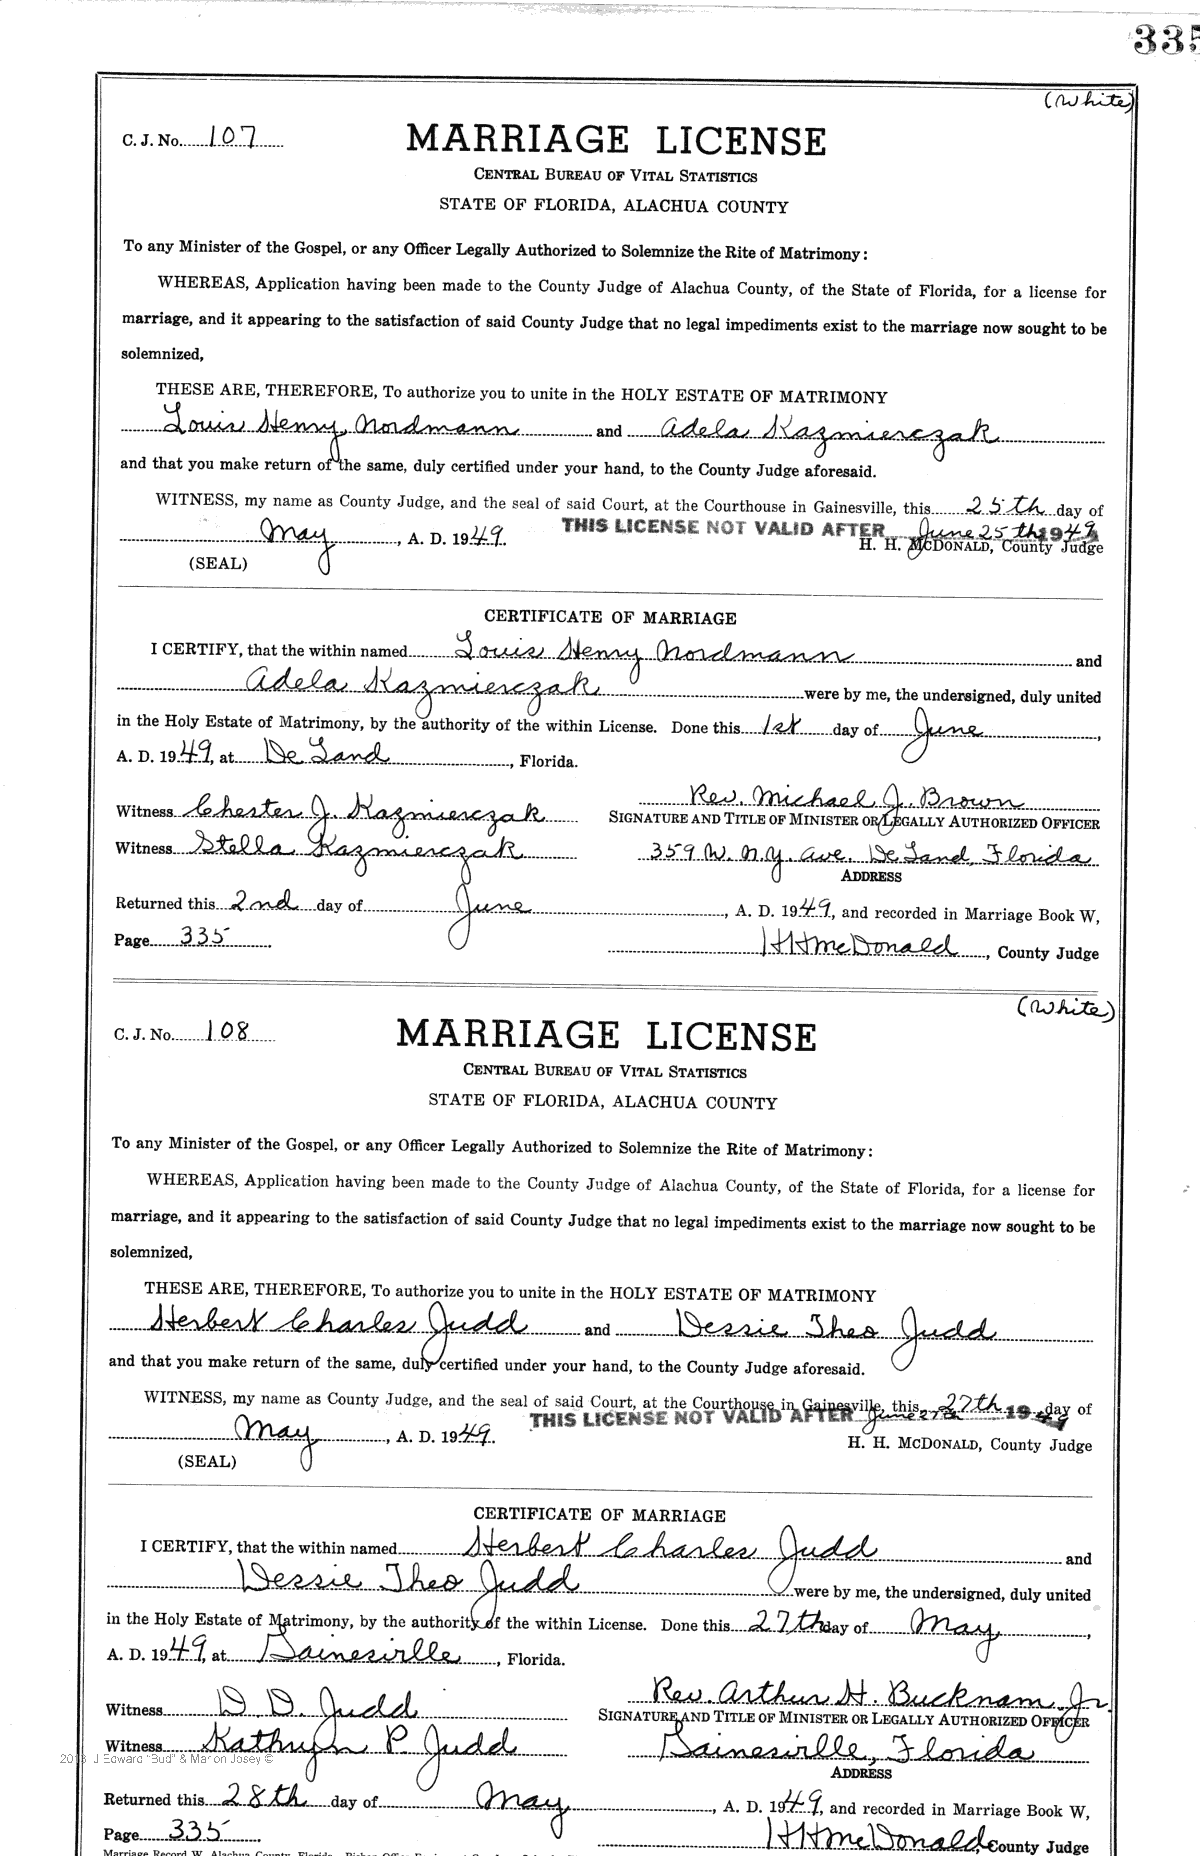 335
(White)
C. J. No. 107
MARRIAGE LICENSE
CENTRAL BUREAU OF VITAL STATISTICS
STATE OF FLORIDA, ALACHUA COUNTY
To any Minister of the Gospel, or any Officer Legally Authorized to Solemnize the Rite of Matrimony:
WHEREAS, Application having been made to the County Judge of Alachua County, of the State of Florida, for a license for
marriage, and it appearing to the satisfaction of said County Judge that no legal impediments exist to the marriage now sought to be
solemnized,
THESE ARE, THEREFORE, To authorize you to unite in the HOLY ESTATE OF MATRIMONY
Louis Henry Nordmann and Adela Kazmierczak
and that you make return of the same, duly certified under your hand, to the County Judge aforesaid.
WITNESS, my name as County Judge, and the seal of said Court, at the Courthouse in Gainesville, this 25th day of
May, A. D. 1949. THIS LICENSE NOT VALID AFTER June 25th 1949
H. H. McDONALD, County Judge
(SEAL)
CERTIFICATE OF MARRIAGE
I CERTIFY, that the within named Louis Henry Nordmann and
Adela Kazmierczak were by me, the undersigned, duly united
in the Holy Estate of Matrimony, by the authority of the within License. Done this 1st day of June,
A. D. 1949, at De Land, Florida.
Rev. Michael J. Brown
Witness Chester J. Kazmierczak SIGNATURE AND TITLE OF MINISTER OR LEGALLY AUTHORIZED OFFICER
Witness Stella Kazmierczak 359 W. N.Y. Ave. De Land, Florida
ADDRESS
Returned this 2nd day of June, A. D. 1949, and recorded in Marriage Book W,
Page 335 HHMcDonald, County Judge
(White)
C. J. No. 108
MARRIAGE LICENSE
CENTRAL BUREAU OF VITAL STATISTICS
STATE OF FLORIDA, ALACHUA COUNTY
To any Minister of the Gospel, or any Officer Legally Authorized to Solemnize the Rite of Matrimony:
WHEREAS, Application having been made to the County Judge of Alachua County, of the State of Florida, for a license for
marriage, and it appearing to the satisfaction of said County Judge that no legal impediments exist to the marriage now sought to be
solemnized,
THESE ARE, THEREFORE, To authorize you to unite in the HOLY ESTATE OF MATRIMONY
Herbert Charles Judd and Dessie Theo Judd
and that you make return of the same, duly certified under your hand, to the County Judge aforesaid.
WITNESS, my name as County Judge, and the seal of said Court, at the Courthouse in Gainesville, this 27th day of
May, A. D. 1949. THIS LICENSE NOT VALID AFTER June 27th 1949
H. H. McDONALD, County Judge
(SEAL)
CERTIFICATE OF MARRIAGE
I CERTIFY, that the within named Herbert Charles Judd and
Dessie Theo Judd were by me, the undersigned, duly united
in the Holy Estate of Matrimony, by the authority of the within License. Done this 27th day of May,
A. D. 1949, at Gainesville, Florida.
Rev. Arthur H. Bucknam, Jr.
Witness D. D. Judd SIGNATURE AND TITLE OF MINISTER OR LEGALLY AUTHORIZED OFFICER
Witness Kathryn P. Judd Gainesville, Florida
2013 J Edward "Bud" & Marion Josey ©
ADDRESS
Returned this 28th day of May, A. D. 1949, and recorded in Marriage Book W,
Page 335 HHMcDonald, County Judge